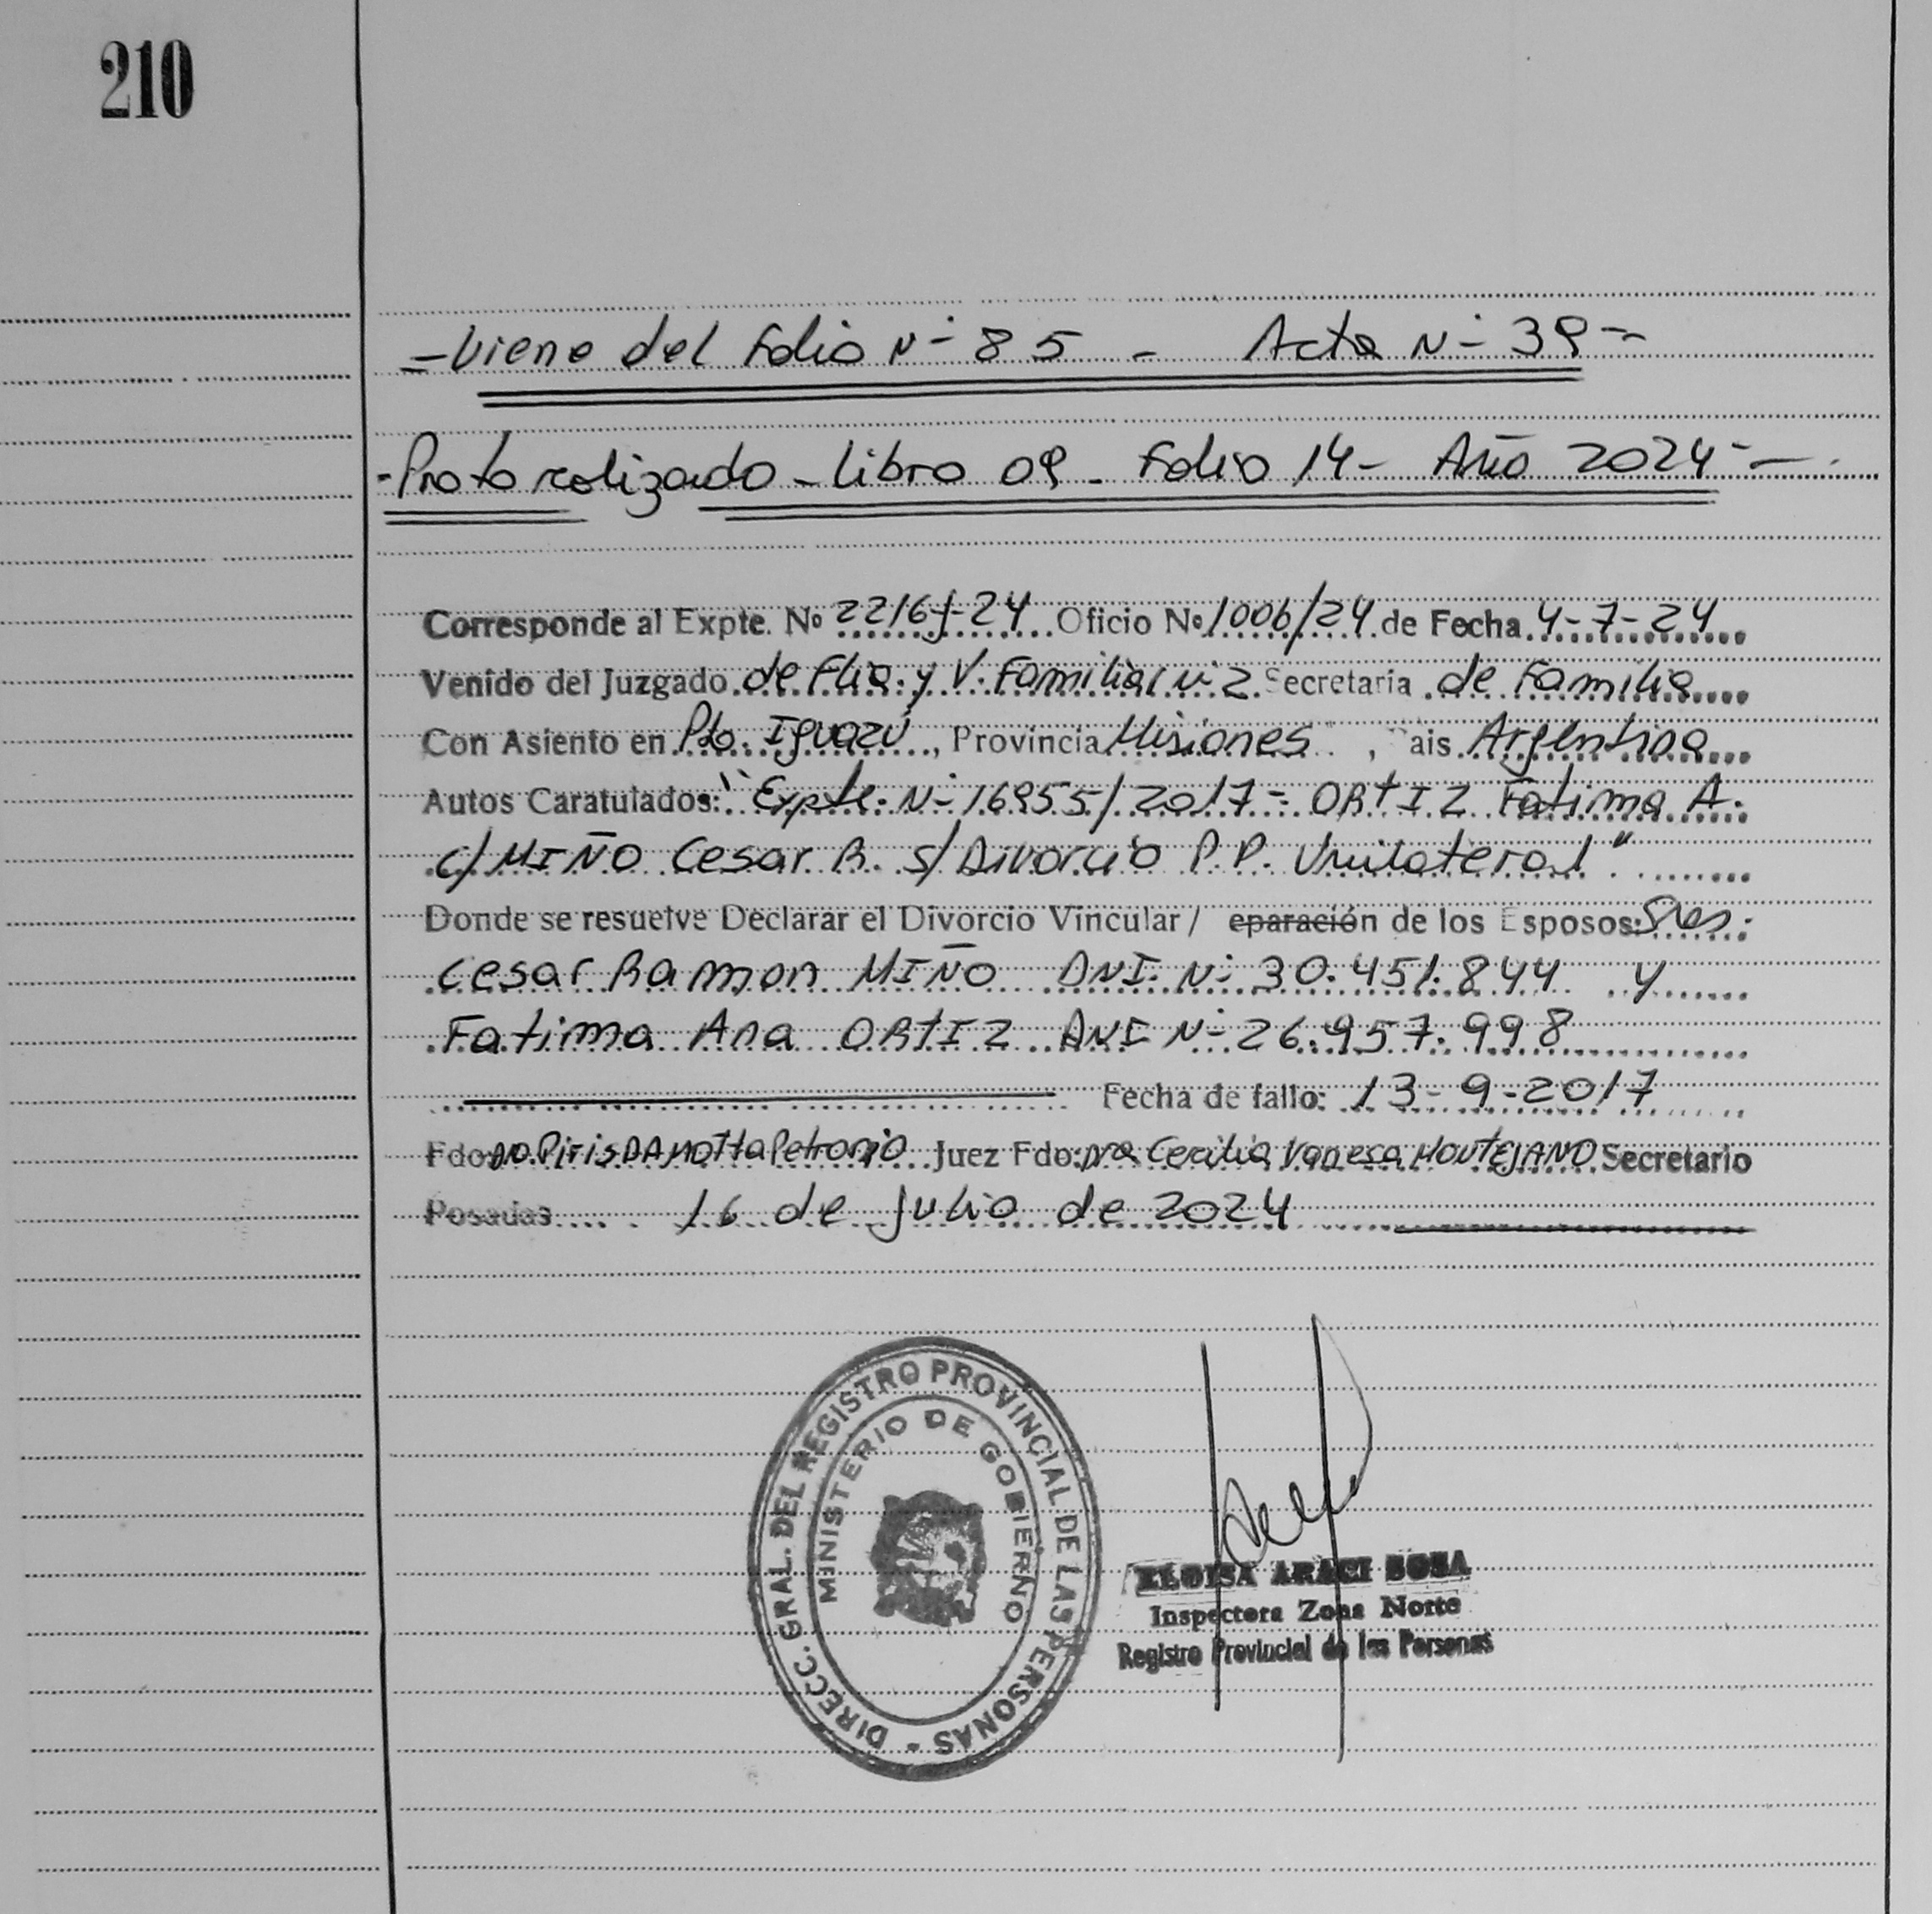 210
- Viene del Folio N- 85 - Acta N- 39 -
- Protocolizado - Libro 09 - Folio 14 - Año 2024 -
Corresponde al Expte. Nº 2216-f-24 Oficio Nº 1006/24 de Fecha 4-7-24
Venido del Juzgado de Flia. y V. Familiar N- 2 Secretaria de Familia
Con Asiento en Pto. Iguazú, Provincia Misiones, Pais Argentina
Autos Caratulados: "Expte. N- 16955/2017 - ORTIZ Fatima A.
c/ MIÑO Cesar R. s/ Divorcio P.P. Unilateral"
Donde se resuelve Declarar el Divorcio Vincular / eparación de los Esposos: Sres.
Cesar Ramon MIÑO DNI. N- 30.451.844 y
Fatima Ana ORTIZ DNI N- 26.957.998
Fecha de fallo: 13-9-2017
Fdo: Piris DA MOTTA Petronio Juez Fdo: Dra Cecilia Vanesa MONTEJANO Secretario
Posadas 16 de Julio de 2024
DIRECC. GRAL. DEL REGISTRO PROVINCIAL DE LAS PERSONAS -
MINISTERIO DE GOBIERNO
ELOISA ARACI SOSA
Inspectora Zona Norte
Registro Provincial de las Personas